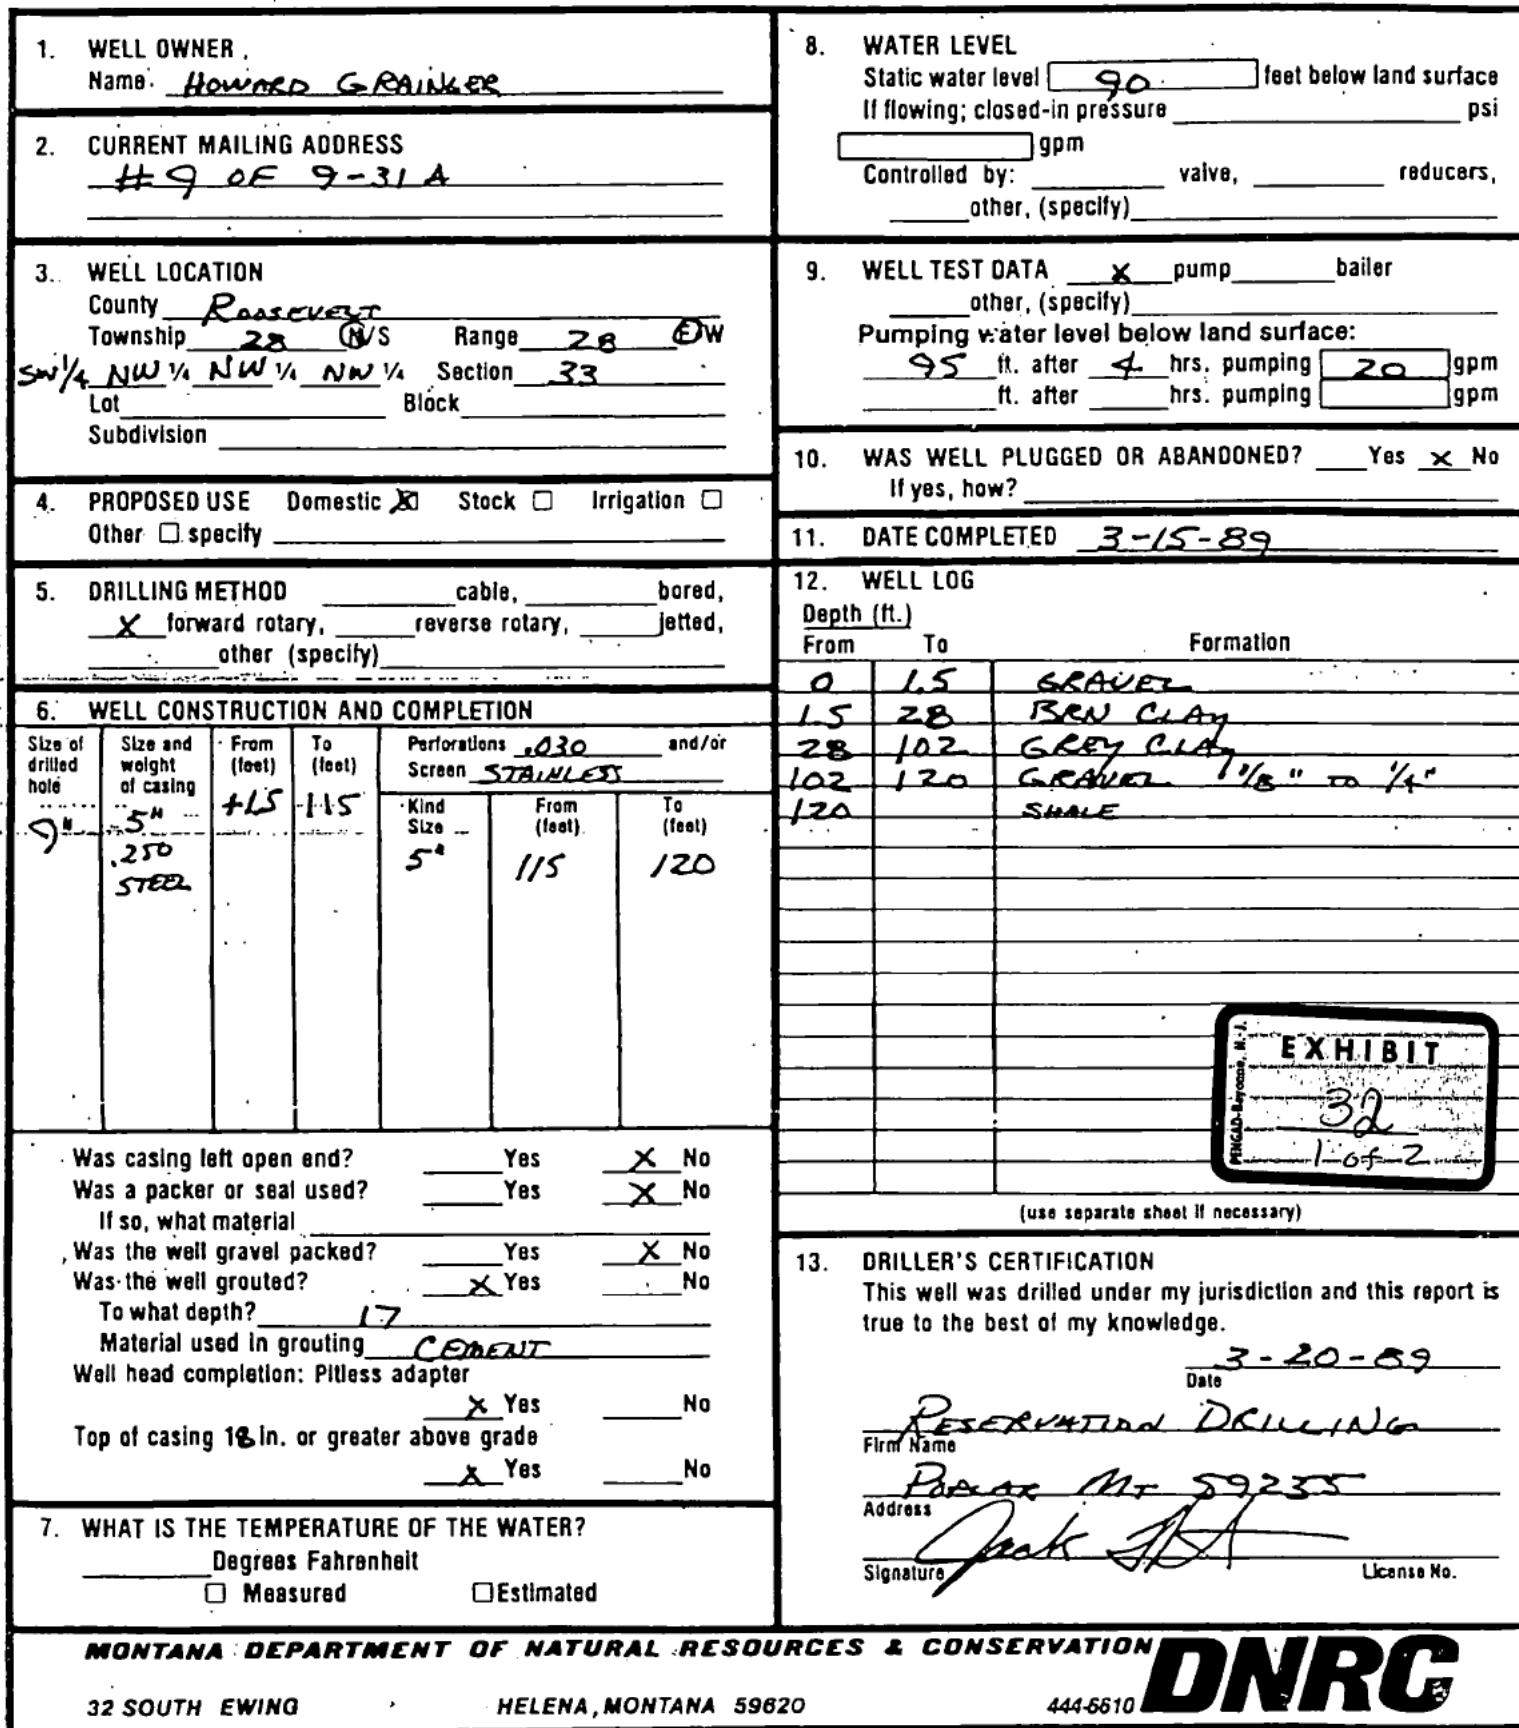 1. WELL OWNER
Name HOWARD GRAINGER
2. CURRENT MAILING ADDRESS
#9 OF 9-31A
3. WELL LOCATION
County ROOSEVELT
Township 28 N/S Range 28 E/W
SW 1/4 NW 1/4 NW 1/4 NW 1/4 Section 33
Lot Block
Subdivision
4. PROPOSED USE Domestic ☒ Stock ☐ Irrigation ☐
Other ☐ specify
5. DRILLING METHOD cable, bored,
X forward rotary, reverse rotary, jetted,
other (specify)
6. WELL CONSTRUCTION AND COMPLETION
Size of drilled hole
Size and weight of casing
From (feet)
To (feet)
Perforations .030 and/or
Screen STAINLESS
Kind Size
From (feet)
To (feet)
9" 5" +1.5 115
.250
STEEL
5" 115 120
Was casing left open end? Yes X No
Was a packer or seal used? Yes X No
If so, what material
Was the well gravel packed? Yes X No
Was the well grouted? X Yes No
To what depth? 17
Material used in grouting CEMENT
Well head completion: Pitless adapter
X Yes No
Top of casing 18 in. or greater above grade
X Yes No
7. WHAT IS THE TEMPERATURE OF THE WATER?
Degrees Fahrenheit
☐ Measured ☐ Estimated
8. WATER LEVEL
Static water level 90 feet below land surface
If flowing; closed-in pressure psi
gpm
Controlled by: valve, reducers,
other, (specify)
9. WELL TEST DATA X pump bailer
other, (specify)
Pumping water level below land surface:
95 ft. after 4 hrs. pumping 20 gpm
ft. after hrs. pumping gpm
10. WAS WELL PLUGGED OR ABANDONED? Yes X No
If yes, how?
11. DATE COMPLETED 3-15-89
12. WELL LOG
Depth (ft.)
From To Formation
0 1.5 GRAVEL
1.5 28 BRN CLAY
28 102 GREY CLAY
102 120 GRAVEL 1/8" TO 1/4"
120 SHALE
PENGAD-Bayonne, N.J.
EXHIBIT
32
1 of 2
(use separate sheet if necessary)
13. DRILLER'S CERTIFICATION
This well was drilled under my jurisdiction and this report is
true to the best of my knowledge.
3-20-89
Date
RESERVATION DRILLING
Firm Name
POPLAR MT 59255
Address
Jack
Signature License No.
MONTANA DEPARTMENT OF NATURAL RESOURCES & CONSERVATION
DNRC
32 SOUTH EWING HELENA, MONTANA 59620 444-6610